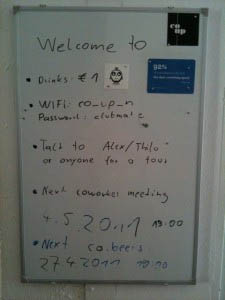 Welcome to
co
up
• Drinks: €1
92%
• WIFI: co_up_n
Password: clubmate
• Talk to Alex/Thilo
or anyone for a tour
• Next coworker meeting
4.5.2011 19:00
• Next co.beers
27.4.2011 19:00